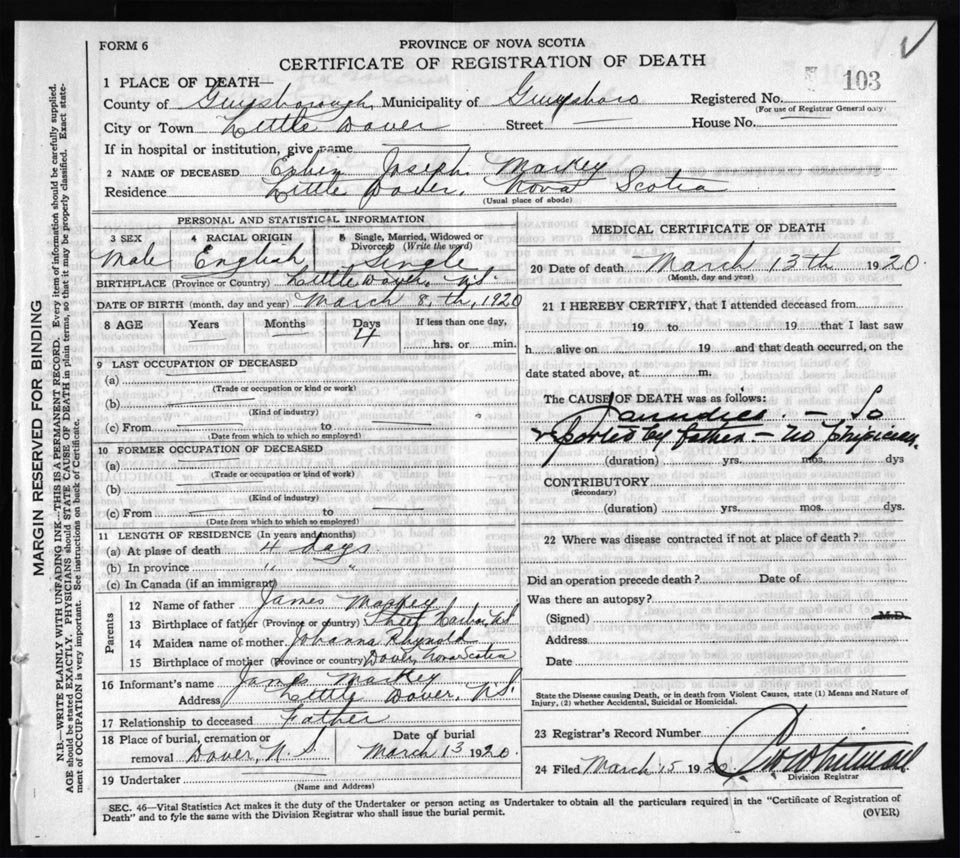 FORM 6
PROVINCE OF NOVA SCOTIA
CERTIFICATE OF REGISTRATION OF DEATH
103
1 PLACE OF DEATH—
County of Guysborough Municipality of Guysboro Registered No.
(For use of Registrar General only)
City or Town Little Dover Street House No.
If in hospital or institution, give name
2 NAME OF DECEASED Joseph Markey
Residence Little Dover, Nova Scotia
(Usual place of abode)
PERSONAL AND STATISTICAL INFORMATION
3 SEX 4 RACIAL ORIGIN 5 Single, Married, Widowed or Divorced (Write the word)
Male English Single
BIRTHPLACE (Province or Country) Little Dover, N.S.
DATE OF BIRTH (month, day and year) March 8, th, 1920
8 AGE Years Months Days If less than one day,
4 hrs. or min.
9 LAST OCCUPATION OF DECEASED
(a)
(Trade or occupation or kind or work)
(b)
(Kind of industry)
(c) From to
(Date from which to which so employed)
10 FORMER OCCUPATION OF DECEASED
(a)
(Trade or occupation or kind of work)
(b)
(Kind of industry)
(c) From to
(Date from which to which so employed)
11 LENGTH OF RESIDENCE (In years and months)
(a) At place of death 4 days
(b) In province " "
(c) In Canada (if an immigrant)
Parents
12 Name of father James Markey
13 Birthplace of father (Province or country) Sheet Harbor, N.S.
14 Maiden name of mother Johanna Rhynold
15 Birthplace of mother (Province or country) Dover, Nova Scotia
16 Informant's name James Markey
Address Little Dover, N.S.
17 Relationship to deceased Father
18 Place of burial, cremation or removal Dover, N.S. Date of burial March 13 1920.
19 Undertaker
(Name and Address)
MEDICAL CERTIFICATE OF DEATH
20 Date of death March 13th 1920.
(Month, day and year)
21 I HEREBY CERTIFY, that I attended deceased from
19 to 19 that I last saw
h alive on 19 and that death occurred, on the
date stated above, at m.
The CAUSE OF DEATH was as follows:
Jaundice. — So
reported by father — no physician.
(duration) yrs. mos. dys
CONTRIBUTORY
(Secondary)
(duration) yrs. mos. dys.
22 Where was disease contracted if not at place of death?
Did an operation precede death? Date of
Was there an autopsy?
(Signed) M.D.
Address
Date
State the Disease causing Death, or in death from Violent Causes, state (1) Means and Nature of
Injury, (2) whether Accidental, Suicidal or Homicidal.
23 Registrar's Record Number
24 Filed March 15 1920
Division Registrar
SEC. 46—Vital Statistics Act makes it the duty of the Undertaker or person acting as Undertaker to obtain all the particulars required in the "Certificate of Registration of
Death" and to fyle the same with the Division Registrar who shall issue the burial permit. (OVER)
MARGIN RESERVED FOR BINDING
N.B.—WRITE PLAINLY WITH UNFADING INK—THIS IS A PERMANENT RECORD. Every item of information should be carefully supplied.
AGE should be stated EXACTLY. PHYSICIANS should STATE CAUSE OF DEATH in plain terms, so that it may be properly classified. Exact state-
ment of OCCUPATION is very important. See instructions on back of Certificate.